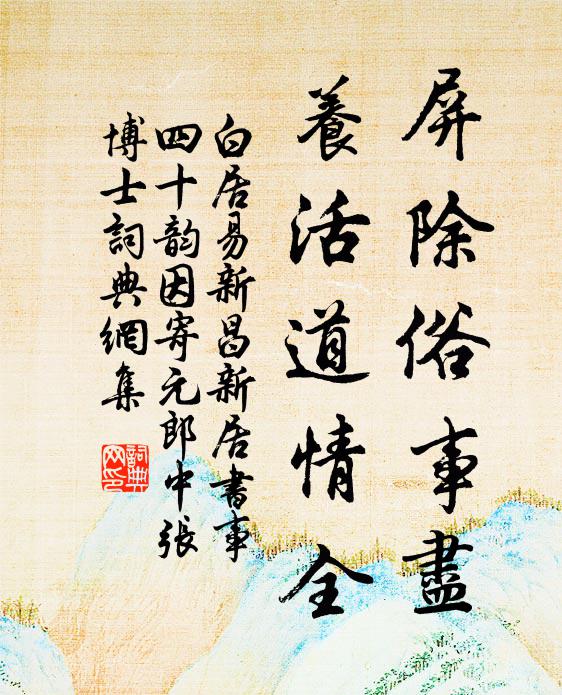 屏除俗事盡
養活道情全
白居易新昌新居書事
四十韵因寄元郎中張
博士詞典網集
詞典
网印